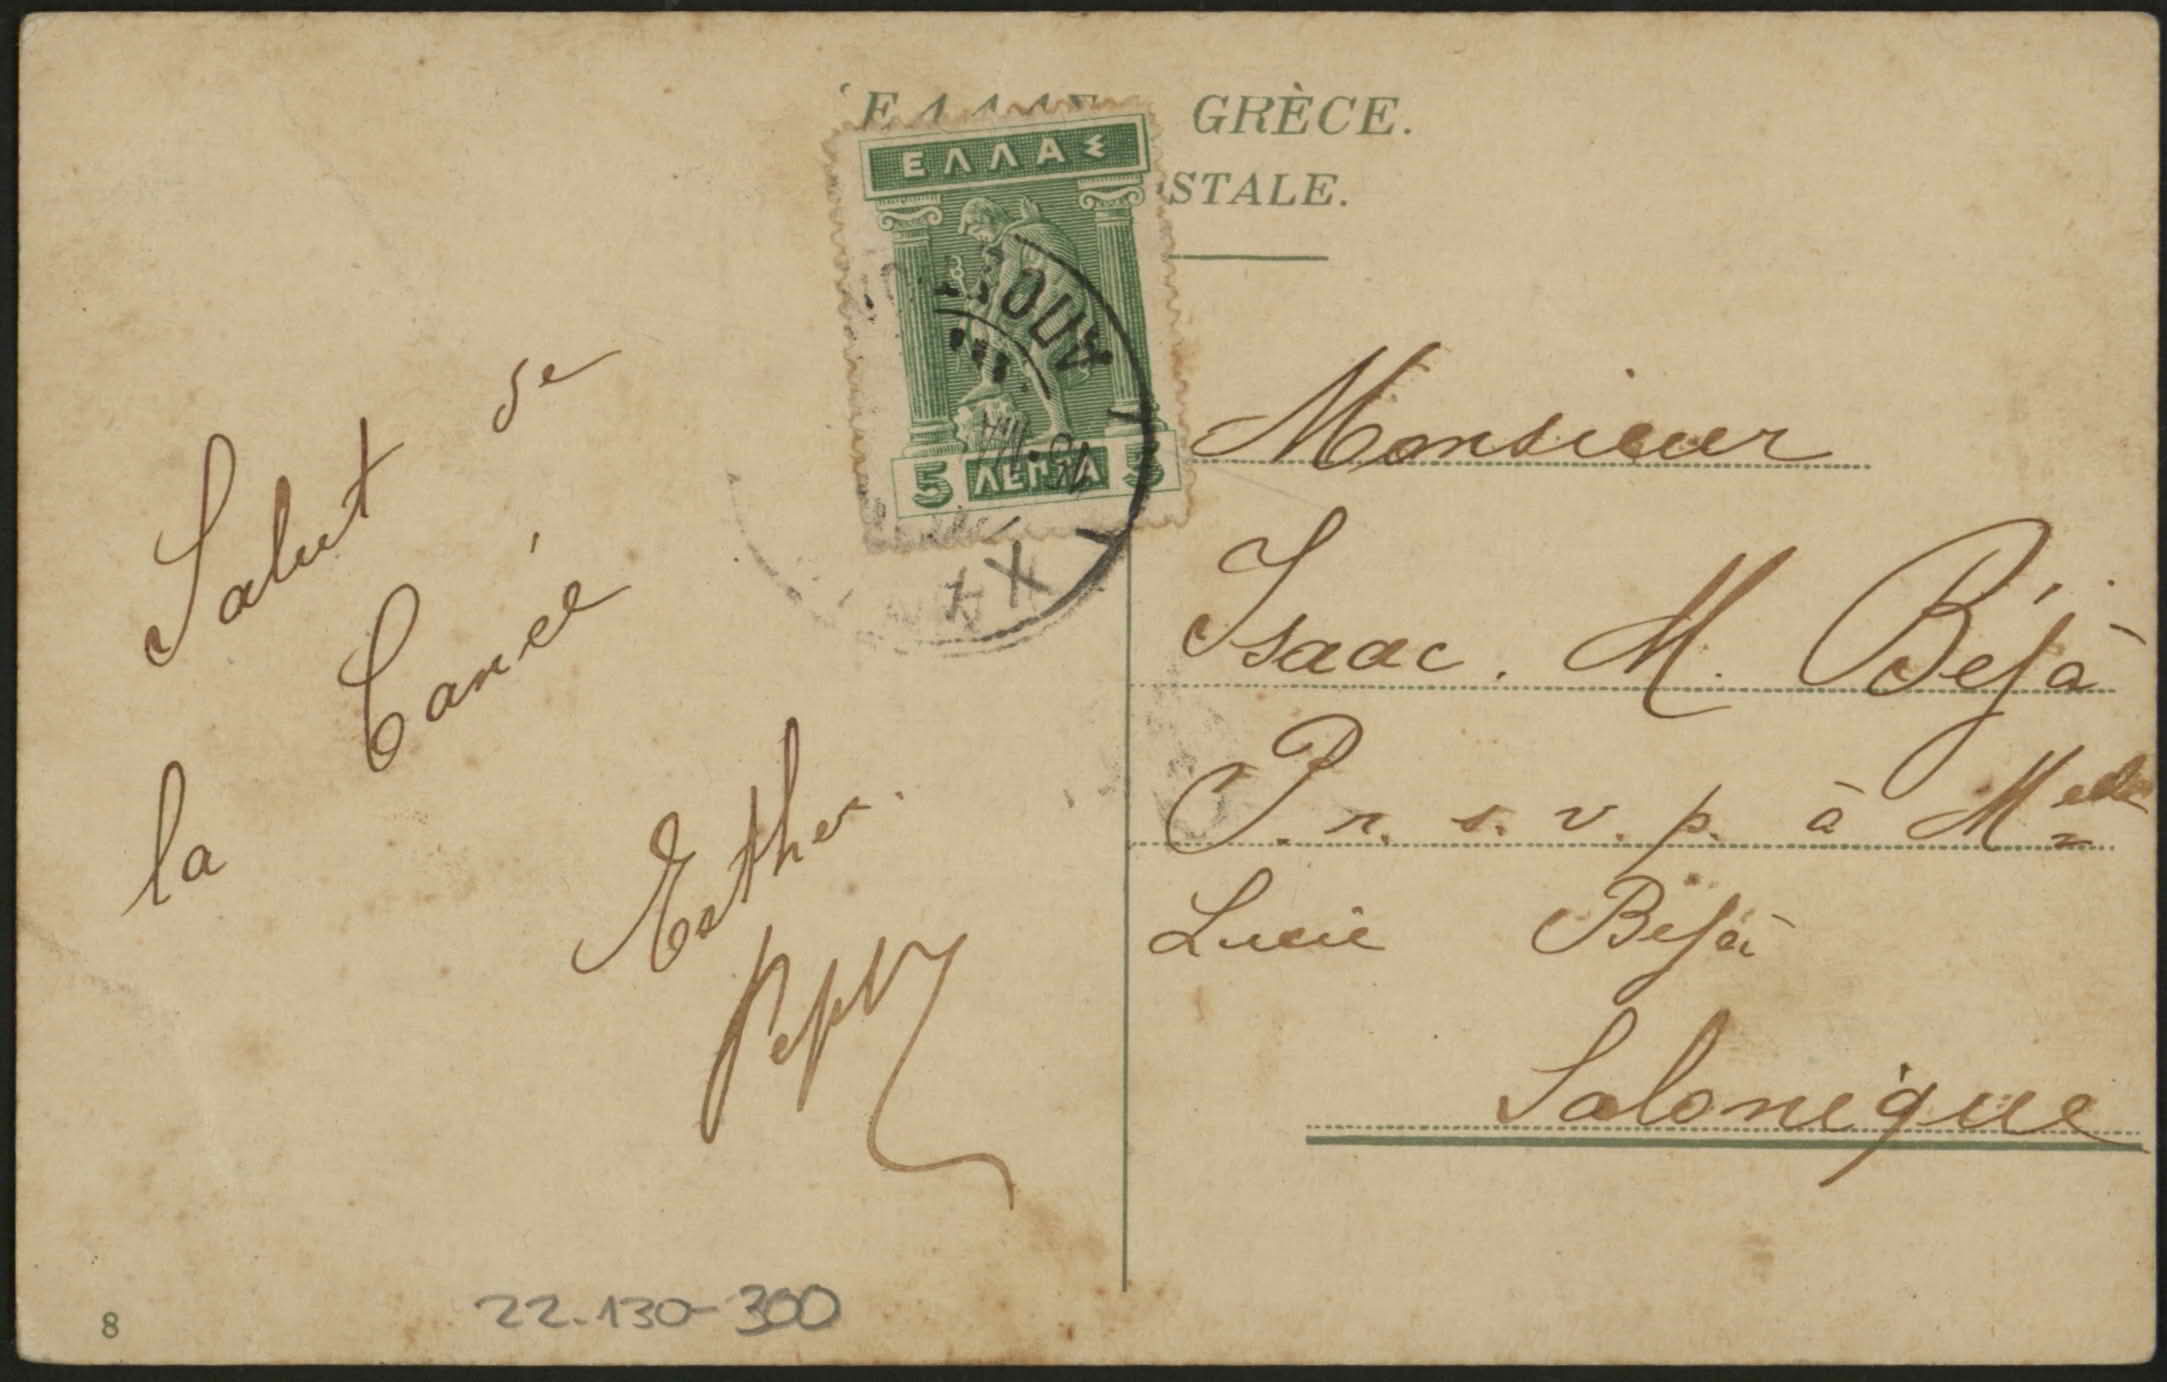 GRÈCE.
STALE.
ΕΛΛΑΣ
5 ΛΕΠΤΑ 5
Salut de
la Canée
Esther
Monsieur
Isaac. M. Béjà
P. n. s. v. p. à Melle
Lucie Béjà
Salonique
22.130-300
8